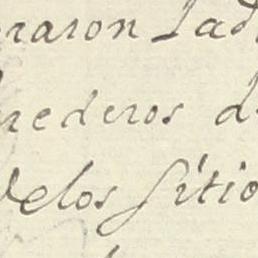 raron Lad
rederos d
Velos sitio